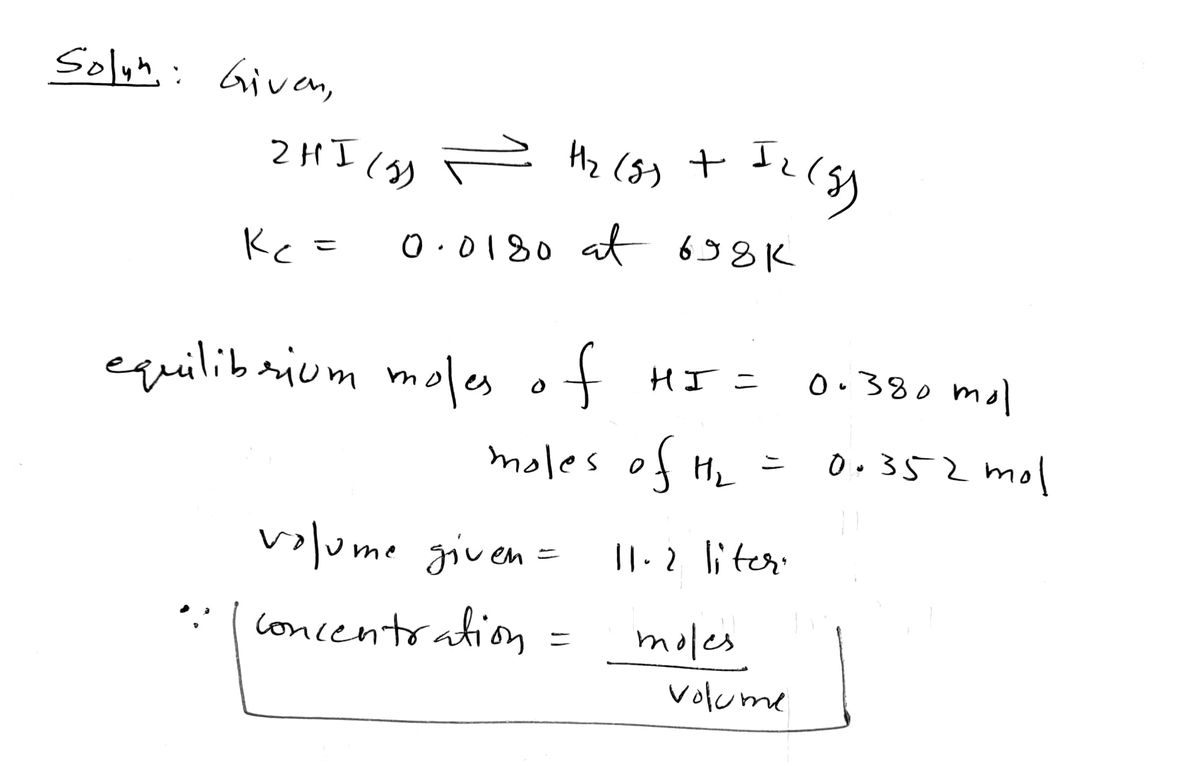 Solun: Given,
2HI(g) ⇌ H2(g) + I2(g)
Kc = 0.0180 at 698K
equilibrium moles of HI = 0.380 mol
moles of H2 = 0.352 mol
volume given = 11.2 liter.
∵ concentration = moles
volume